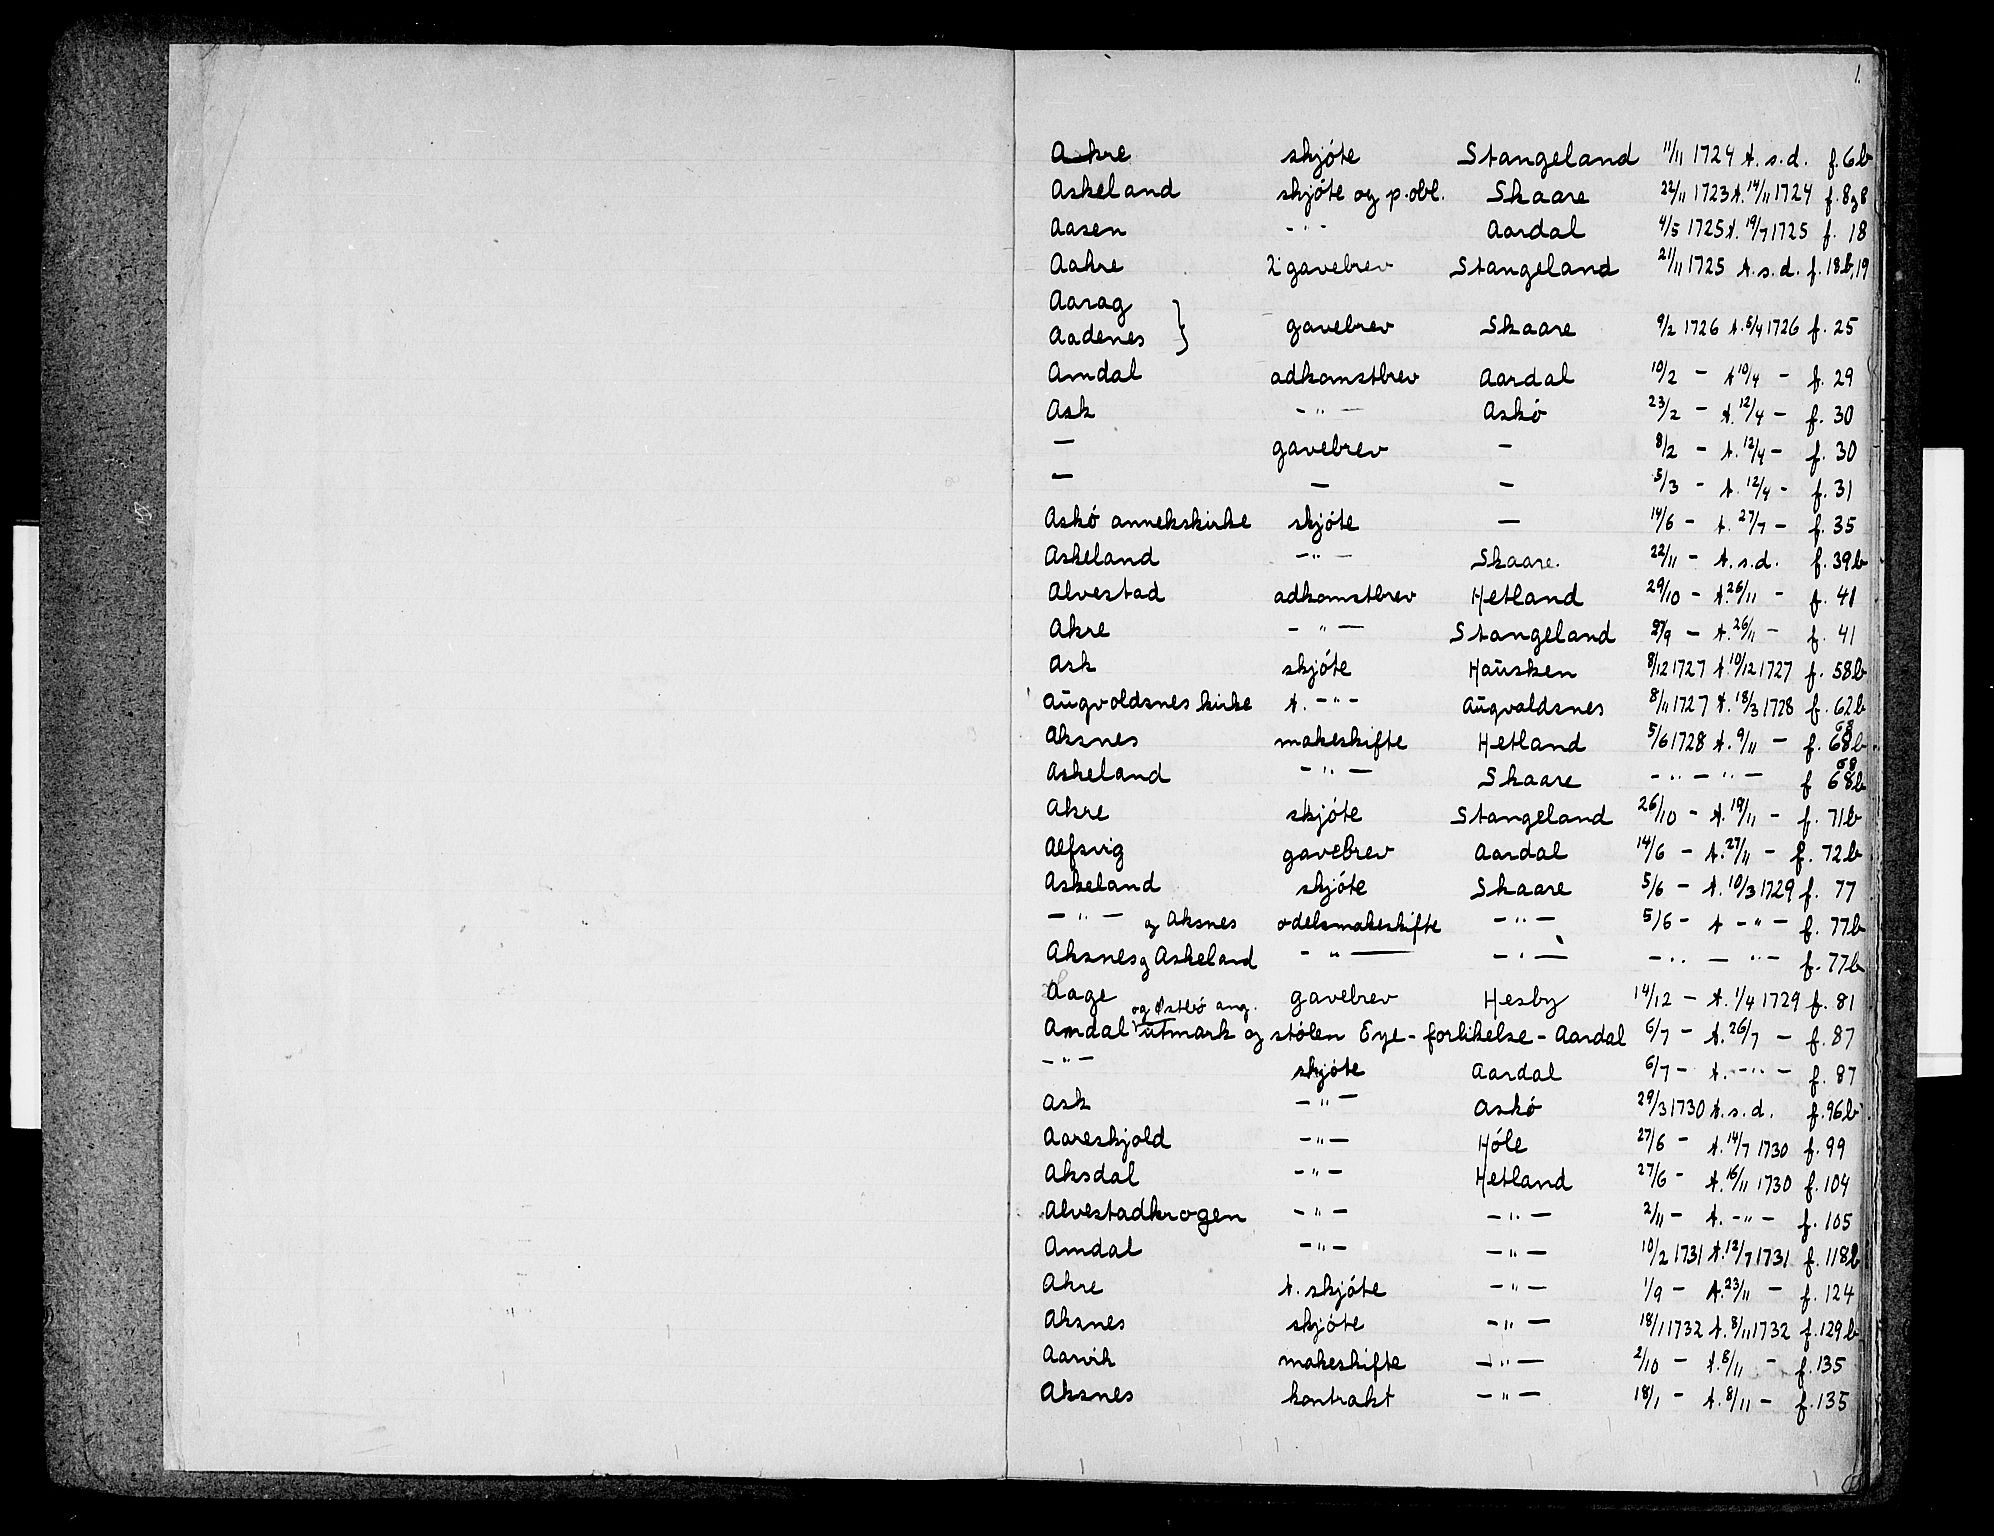 1.
Akre skjóte Stangeland 11/11 1724 t. s.d. f. 6b
Askeland skjóte og p.obl. Skaare 22/11 1723 t. 14/11 1724 f. 8 og 8
Aasen - " - Aardal 4/5 1725 t. 19/7 1725 f. 18
Aakre 2 gavebrev Stangeland 21/11 1725 t. s.d. f. 18b, 19
Aarag
Aadenes } gavebrev Skaare 9/2 1726 t. 5/4 1726 f. 25
Amdal adkomstbrev Aardal 10/2 - t 10/4 - f. 29
Ask - " - Askó 23/2 - t. 12/4 - f. 30
- gavebrev - 8/2 - t. 12/4 - f. 30
- - - 5/3 - t. 12/4 - f. 31
Askó annekskirke skjóte - 14/6 - t. 27/7 - f. 35
Askeland - " - Skaare. 22/11 - t. s.d. f. 39b
Alvestad adkomstbrev Hetland 29/10 - t. 26/11 - f. 41
Akre - " - Stangeland 27/9 - t. 26/11 - f. 41
Ask skjóte Haŭsken 8/12 1727 t 10/12 1727 f. 58b
Aŭgvoldsnes kirke t. - " - Aŭgvaldsnes 8/11 1727 t. 18/3 1728 f. 62b
Aksnes makeskifte Hetland 5/6 1728 t. 9/11 - f. 68b 68
Askeland - " - Skaare - " - " - f 68b 68
Akre skjóte Stangeland 26/10 - t. 19/11 - f. 71b
Alfsvig gavebrev Aardal 14/6 - t. 27/11 - f. 72b
Askeland skjóte Skaare 5/6 - t. 10/3 1729 f. 77
- " - og Aksnes odelsmakeskifte - " - 5/6 - t - " - f. 77b
Aksnes og Askeland - " - - " - - " - " - f. 77b
Aage gavebrev Hesby 14/12 - t. 1/4 1729 f. 81
og Østbó ang.
Amdal utmark og stólen Eye - forlikelse - Aardal 6/7 - t. 26/7 - f. 87
- " - skjóte Aardal 6/7 - t. - " - f. 87
Ask - " - Askó 29/3 1730 t. s.d. f. 96b
Aareskjold - " - Hóle 27/6 - t. 14/7 1730 f. 99
Aksdal - " - Hetland 27/6 - t. 16/11 1730 f. 104
Alvestadkrogen - " - - " - 2/11 - t. - " - f. 105
Amdal - " - - " - 10/2 1731 t. 12/7 1731 f. 118b
Akre t. skjóte - " - 1/9 - t. 23/11 - f. 124
Aksnes skjóte - " - 18/1 1732 t. 8/11 1732 f. 129b
Aarvik makeskifte - " - 2/10 - t. 8/11 - f. 135
Aksnes kontrakt - " - 18/1 - t. 8/11 - f. 135